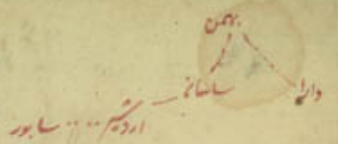 بهمن
دارا ساسان
اردشیر .... سابور